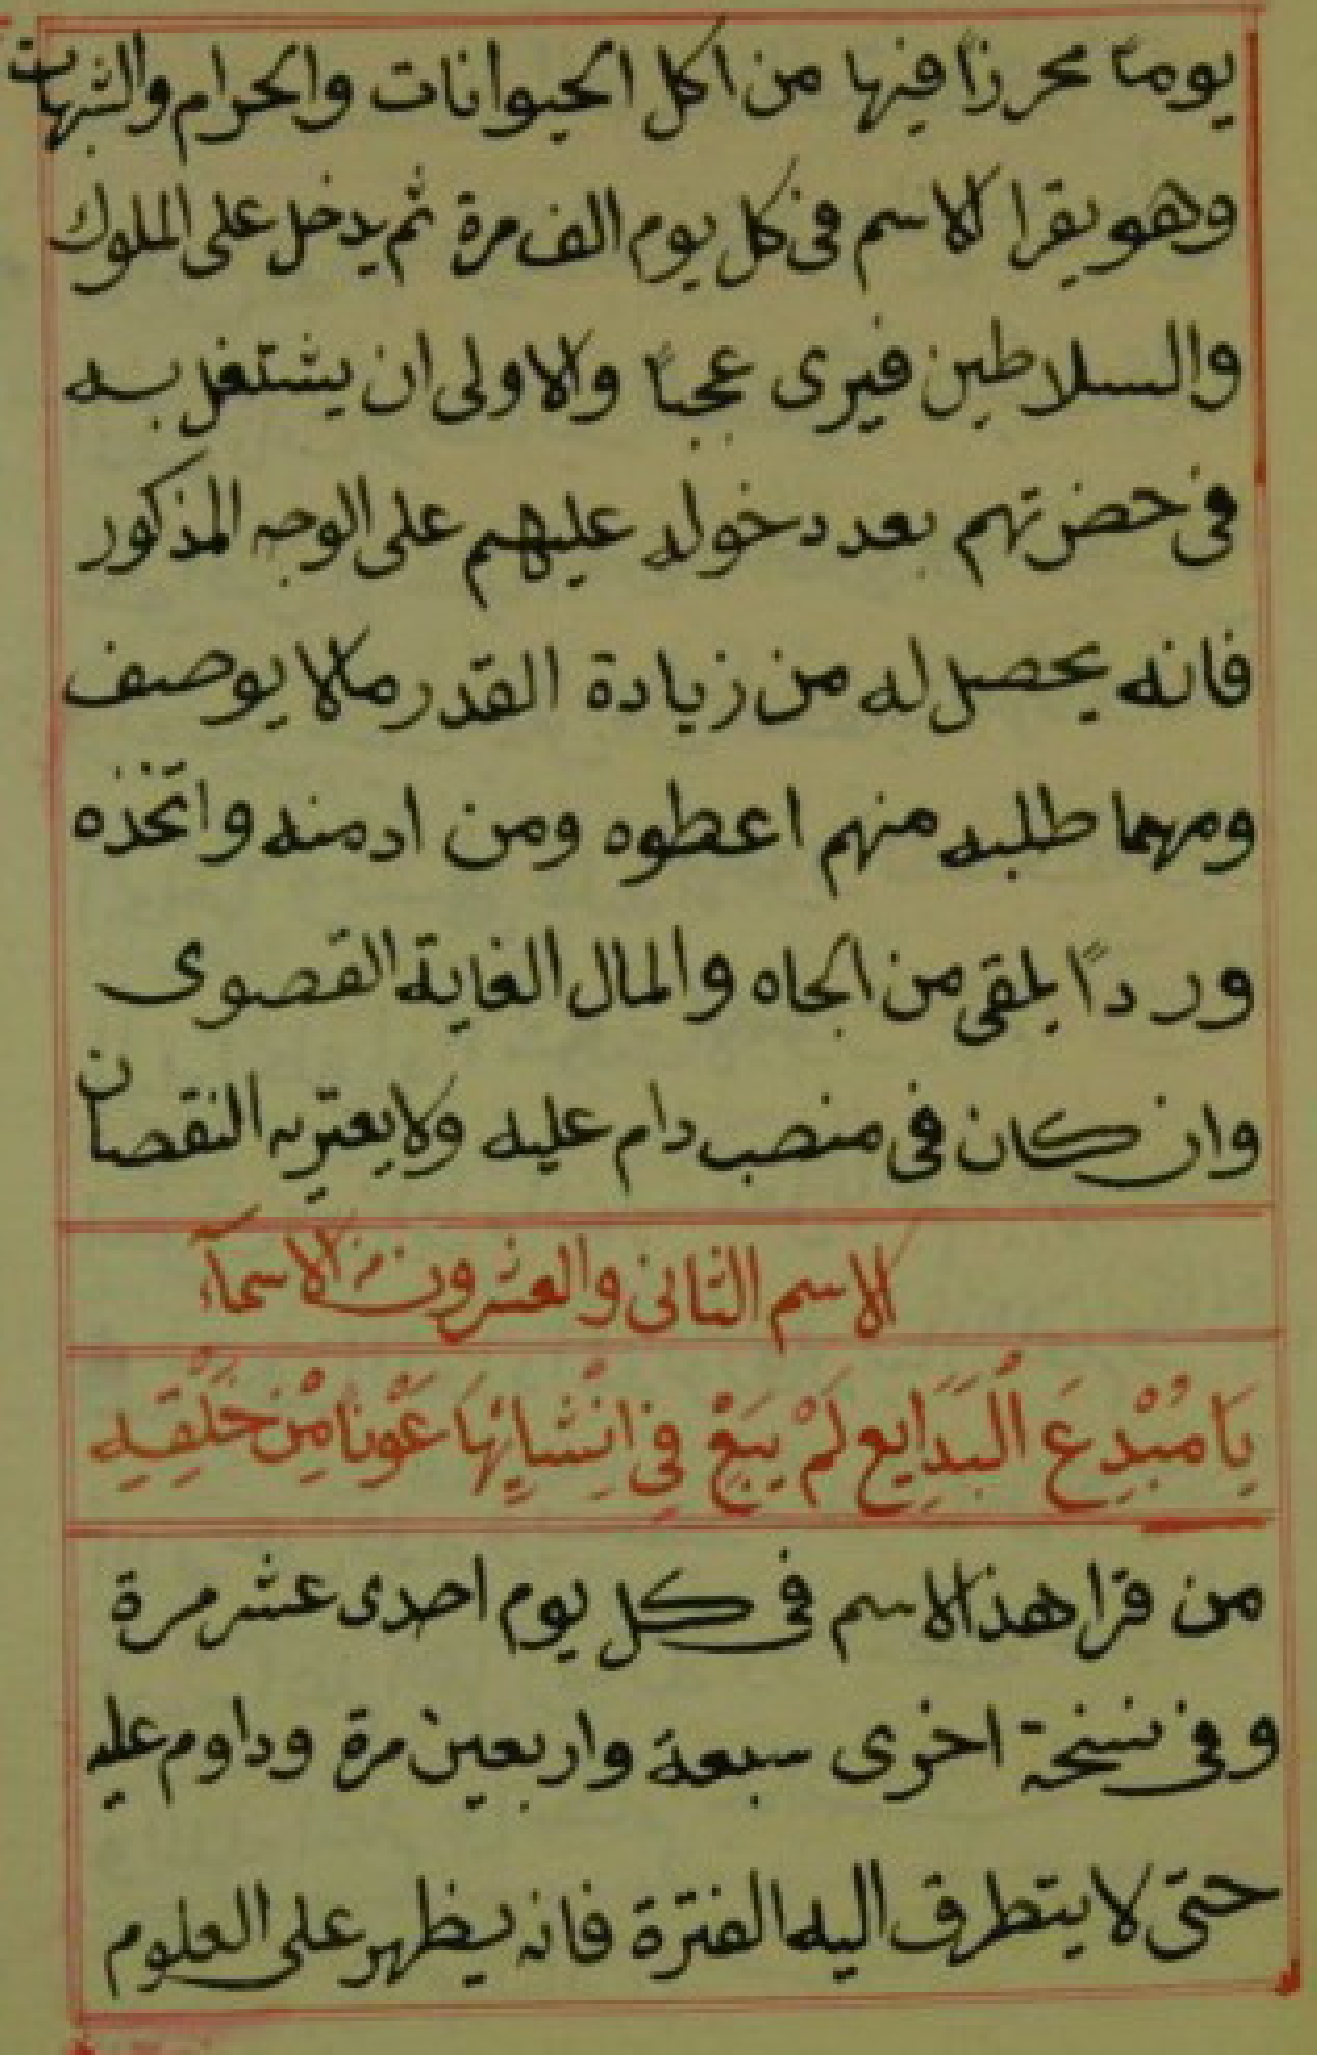 يوماً محرزاً فيها من اكل الحيوانات والحرام والشبهات
وهو يقرا الاسم فى كل يوم الف مرة ثم يدخل على الملوك
والسلاطين فيرى عجباً والاولى ان يشتغل به
فى حضرتهم بعد دخوله عليهم على الوجه المذكور
فانه يحصل له من زيادة القدر مالا يوصف
ومهما طلبه منهم اعطوه ومن ادمنه واتخذه
ورداً يلقى من الجاه والمال الغاية القصوى
وان كان فى منصب دام عليه ولا يعتريه النقصان
الاسم الثانى والعشرون من الاسمآء
يَا مُبْدِعَ الْبَدَايِعِ لَمْ يَبْغِ فِي اِنْشَايِهَا عَوْنًا مِنْ خَلْقِهِ
من قرا هذا الاسم فى كل يوم احدى عشر مرة
وفى نسخة اخرى سبعة واربعين مرة وداوم عليه
حتى لا يتطرق اليه الفترة فانه يظهر على العلوم